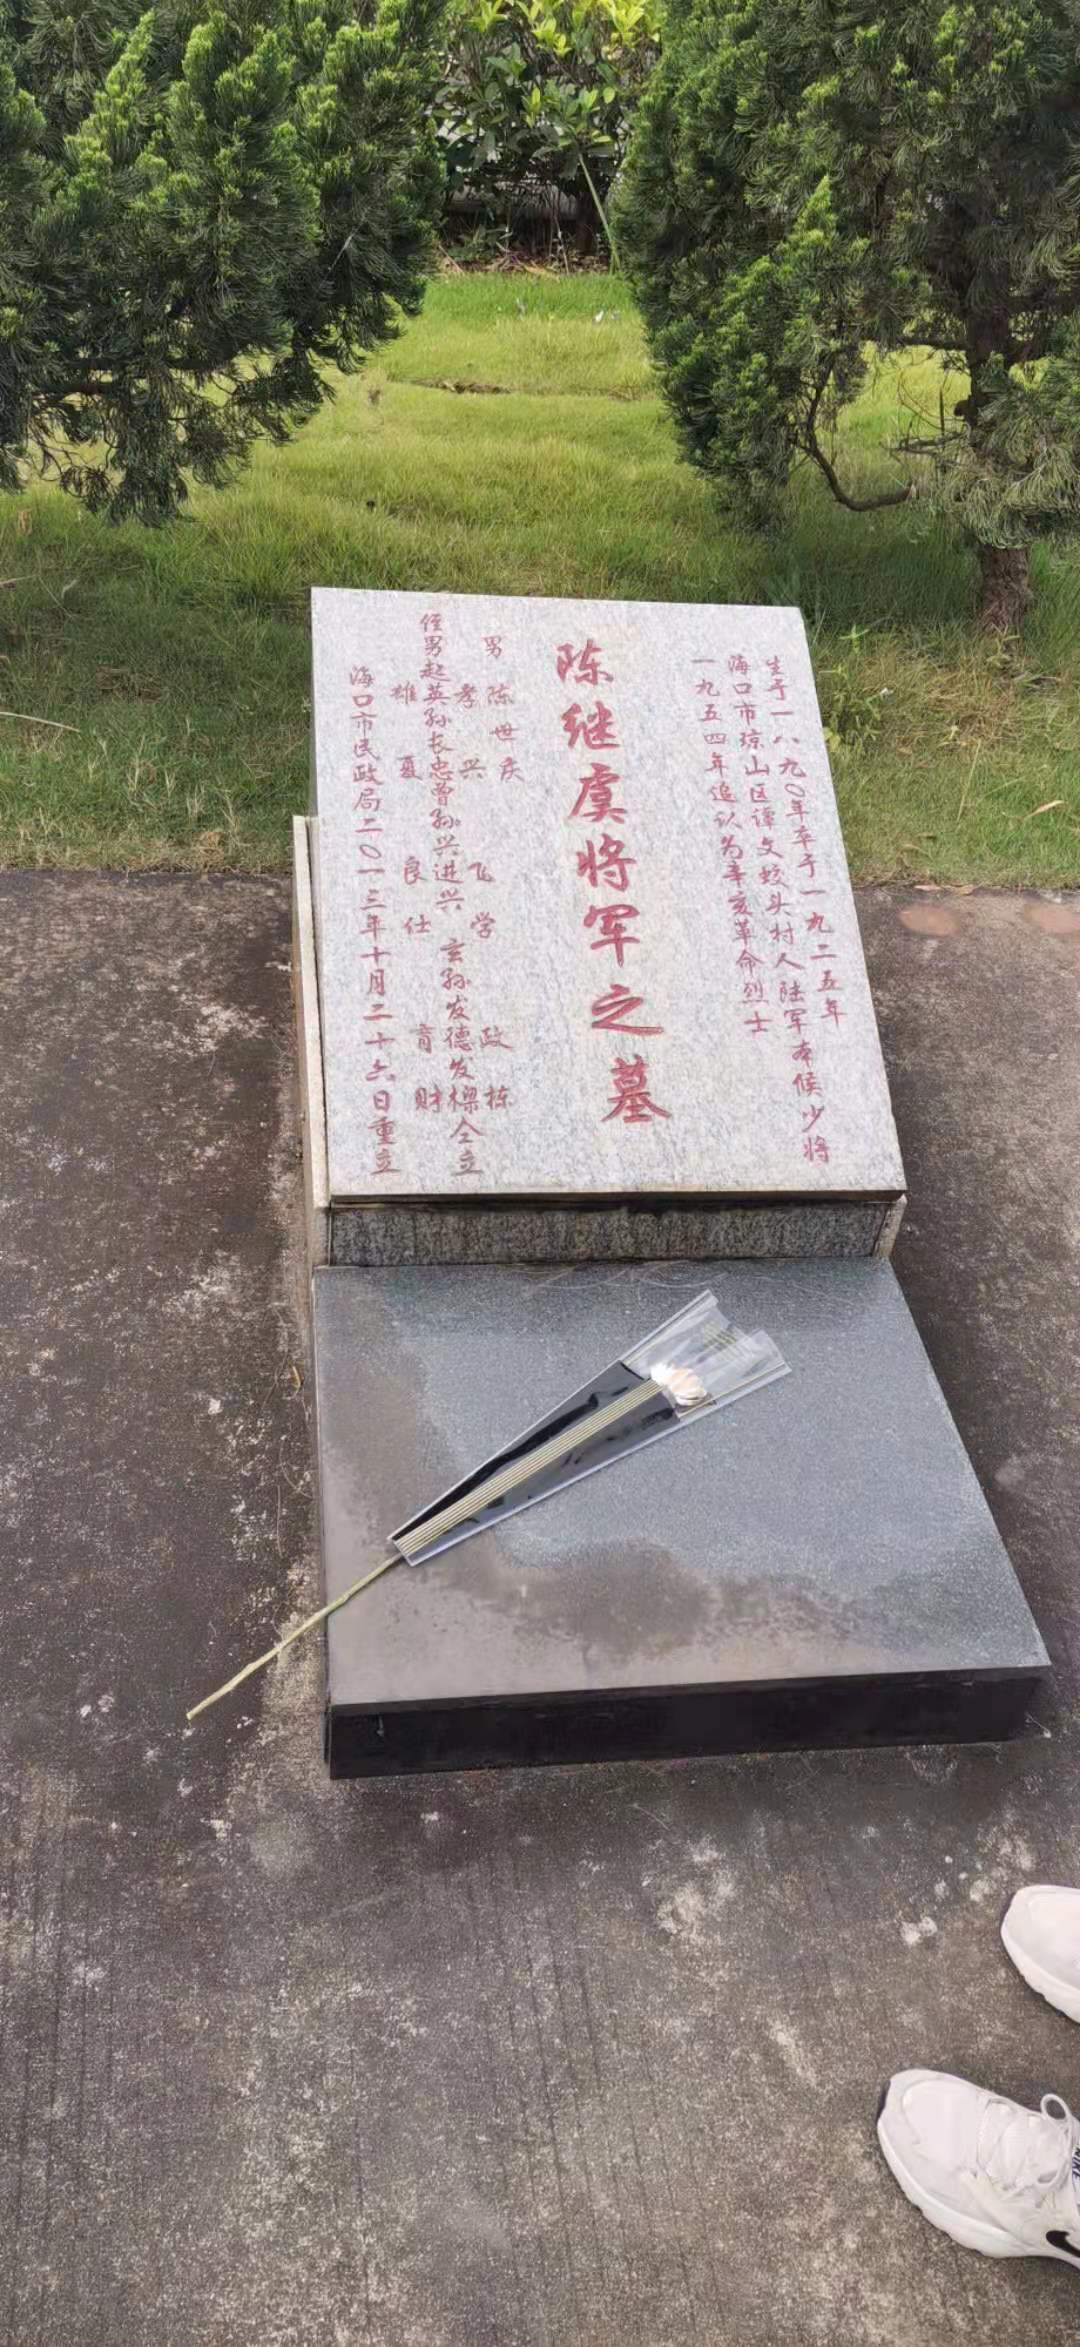 生于一八九〇年卒于一九二五年
海口市琼山区谭文蛟头村人陆军本候少将
一九五四年追认为辛亥革命烈士
陈继虞将军之墓
男 陈世庆 飞学 政栋
孝兴
侄男起英孙长忠曾孙兴进兴 玄孙发德发樑仝立
雄 夏 良仕 育财
海口市民政局二〇一三年十月二十六日重立